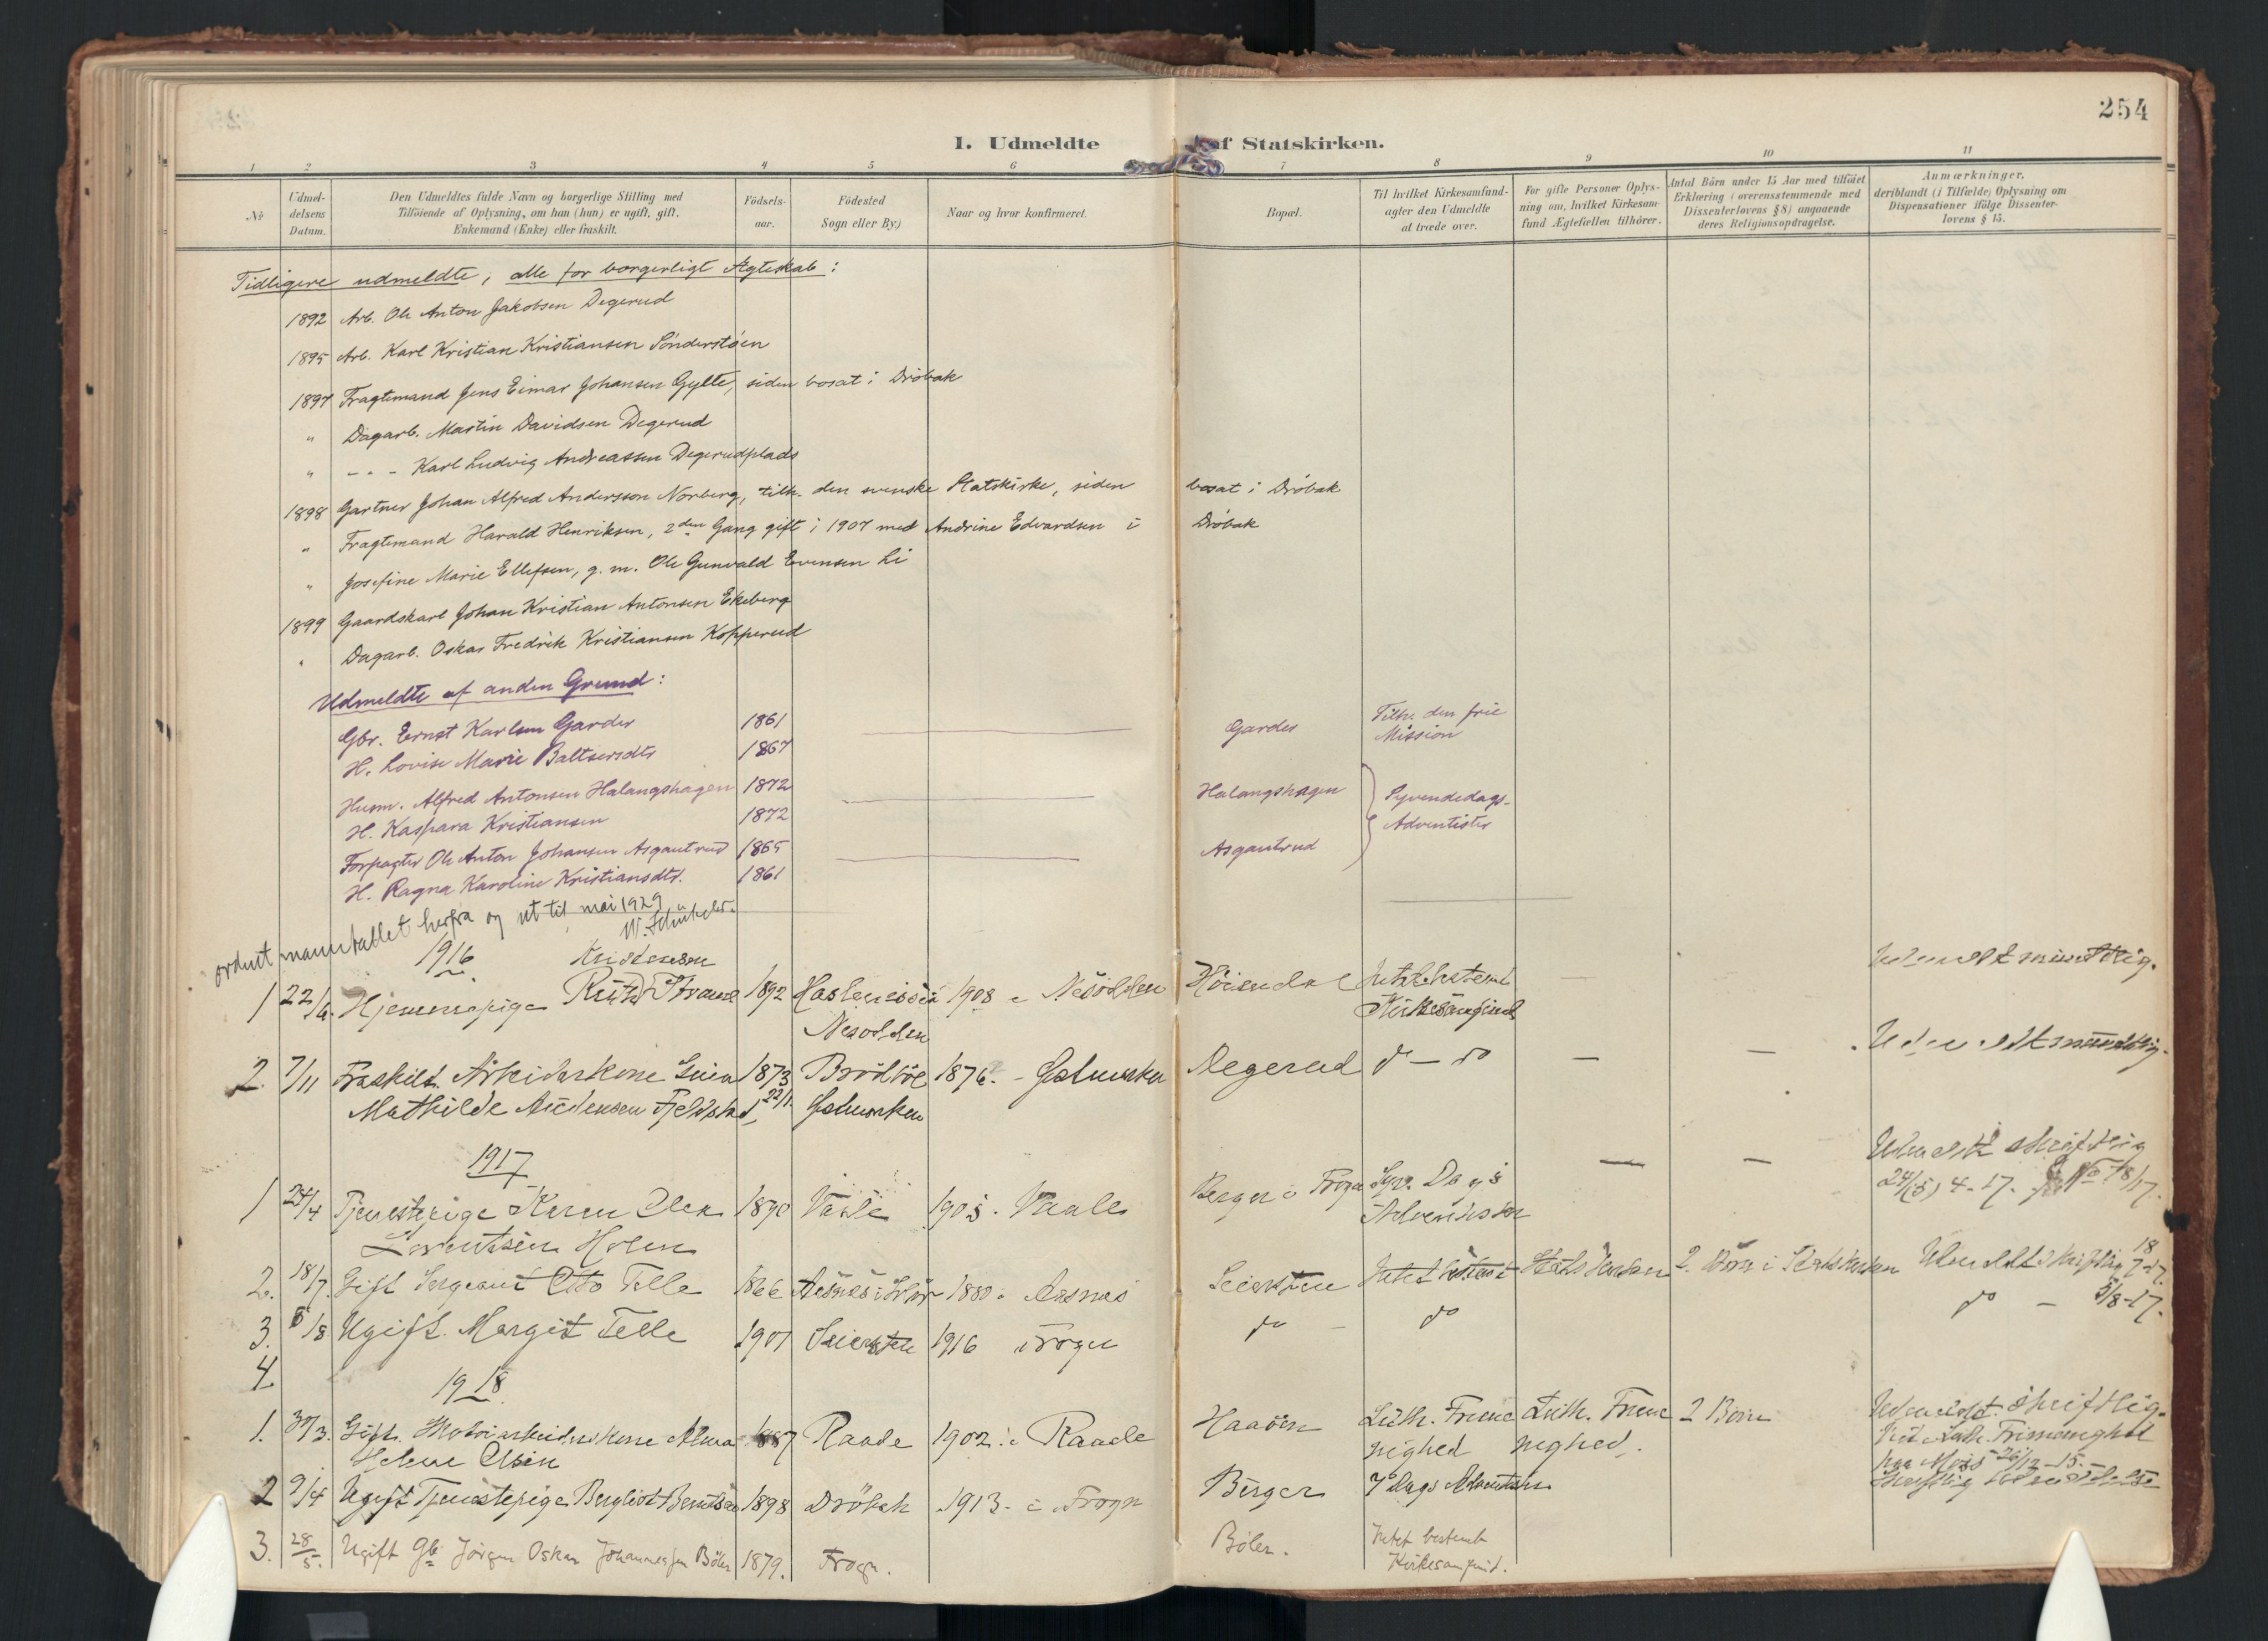 254
I. Udmeldte af Statskirken.
1 2 3 4 5 6 7 8 9 10 11
No
Udmeldelsens Datum.
Den Udmeldtes fulde Navn og borgerlige Stilling med
Tilföiende af Oplysning, om han (hun) er ugift, gift.
Enkemand (Enke) eller fraskilt.
Födsels-
aar.
Födested
Sogn eller By.)
Naar og hvor konfirmeret.
Bopæl.
Til hvilket Kirkesamfund-
agter den Udmeldte
at træde over.
For gifte Personer Oplys-
ning om, hvilket Kirkesam-
fund Ægtefællen tilhörer.
Antal Börn under 15 Aar med tilföiet
Erklæring i overensstemmende med
Dissenterlovens § 8) angaaende
deres Religionsopdragelse.
Anmærkninger,
deriblandt (i Tilfælde) Oplysning om
Dispensationer ifölge Dissenter-
lovens § 15.
Tidligere udmeldte, alle for borgerligt Ægteskab:
1892 Arb. Ole Anton Jakobsen Degerud
1895 Arb. Karl Kristian Kristiansen Sönderstöen
1897 Fragtemand Jens Eimar Johansen Gylte, siden bosat i Dröbak
" Dagarb. Martin Davidsen Degerud
" - - - Karl Ludvig Andreassen Degerudplads
1898 Gartner Johan Alfred Andersson Norberg, tilh. den svenske Statskirke, siden bosat i Dröbak
" Fragtemand Harald Henriksen, 2den Gang gift i 1907 med Andrine Edvardsen i Dröbak
" Josefine Marie Ellefsen, g. m. Ole Gunvald Evensen Li
1899 Gaardskarl Johan Kristian Antonsen Ekeberg
" Dagarb. Oskar Fredrik Kristiansen Kopperud
Udmeldte af anden Grund:
Gbr. Ernst Karlsen Garder 1861 Garder Tilh. den frie
H. Lovise Marie Baltsersdtr 1867 Mission
Husm. Alfred Antonsen Halangshagen 1872 Halangshagen Syvendedags-
H. Kaspara Kristiansen 1872 Adventister
Forpagter Ole Anton Johansen Asgautrud 1865 Asgautrud
H. Ragna Karoline Kristiansdtr. 1861
ordnet manntallet herfra og ut til mai 1929
1916
1 22/6. Hjemmepige Ruth Kristensen 1892 1908 i Nesodden Intet bestemt
Nesodden Kirkesamfund
Udmeldt mundtlig.
2. 7/11 Fraskilt Arbeiderkone 1873 1876. Degerud do - do — — Udmeldt mundtlig.
Mathilde Andersen Fjeldstad 22/1.
1917
1 24/4 Tjenestepige Karen Olea 1890 Vaale 1905. Vaale Berger i Frogn Syv. Dags — — Udmeldt skriftlig
Lorentsen Holen Adventister
2. 18/7. Gift Sergeant Otto Telle 1866 1880 i Aasnes Seiersten Intet bestemt Statskirken 2 Börn i Statskirken Udmeldt skriftlig 18/7-17.
3. 8/8 Ugift. Margit Telle 1901 Seiersten 1916 Frogn do - do do - 8/8-17.
4.
1918
1. 30/3. Gift. Motorarbeiderkone Alma 1887 Raade 1902 i Raade Haaöen Luth. Frime Luth. Frime 2 Börn Udmeldt skriftlig.
Helene Olsen nighed nighed.
2 9/4 Ugift Tjenestepige Bergliot Berntsen 1898 Dröbak 1913 i Frogn Berger 7 Dags Adventister Skriftlig Udmeldelse
3. 28/5. Ugift Gb. Jörgen Oskar Johannessen Böler 1879. Frogn. Böler. Intet bestemt
Kirkesamfund.